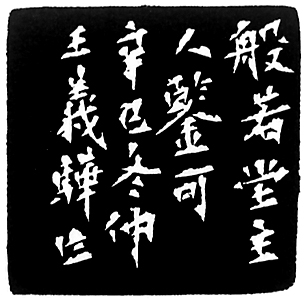 般若堂主
人鑿可
辛巳冬仲
王義驊作